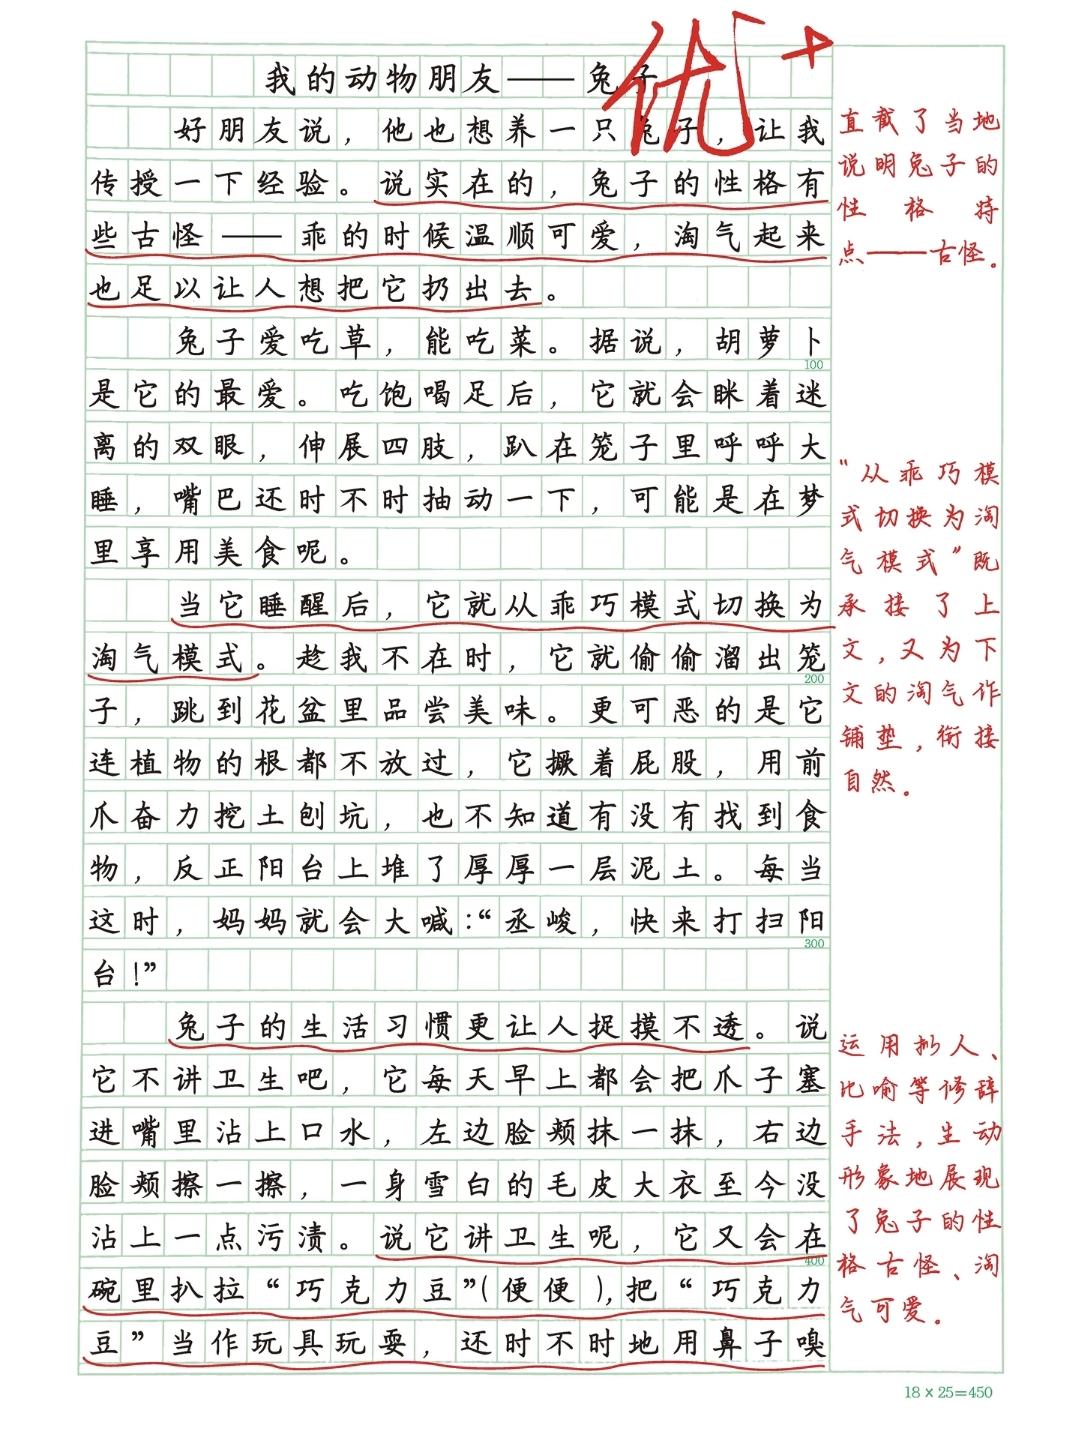 我的动物朋友——兔子
优+
好朋友说，他也想养一只兔子，让我
传授一下经验。说实在的，兔子的性格有
些古怪——乖的时候温顺可爱，淘气起来
也足以让人想把它扔出去。
兔子爱吃草，能吃菜。据说，胡萝卜
100
是它的最爱。吃饱喝足后，它就会眯着迷
离的双眼，伸展四肢，趴在笼子里呼呼大
睡，嘴巴还时不时抽动一下，可能是在梦
里享用美食呢。
当它睡醒后，它就从乖巧模式切换为
淘气模式。趁我不在时，它就偷偷溜出笼
200
子，跳到花盆里品尝美味。更可恶的是它
连植物的根都不放过，它撅着屁股，用前
爪奋力挖土刨坑，也不知道有没有找到食
物，反正阳台上堆了厚厚一层泥土。每当
这时，妈妈就会大喊：“丞峻，快来打扫阳
300
台！”
兔子的生活习惯更让人捉摸不透。说
它不讲卫生吧，它每天早上都会把爪子塞
进嘴里沾上口水，左边脸颊抹一抹，右边
脸颊擦一擦，一身雪白的毛皮大衣至今没
沾上一点污渍。说它讲卫生呢，它又会在
400
碗里扒拉“巧克力豆”（便便），把“巧克力
豆”当作玩具玩耍，还时不时地用鼻子嗅
直截了当地
说明兔子的
性格特
点——古怪。
“从乖巧模
式切换为淘
气模式”既
承接了上
文，又为下
文的淘气作
铺垫，衔接
自然。
运用拟人、
比喻等修辞
手法，生动
形象地展现
了兔子的性
格古怪、淘
气可爱。
18×25=450